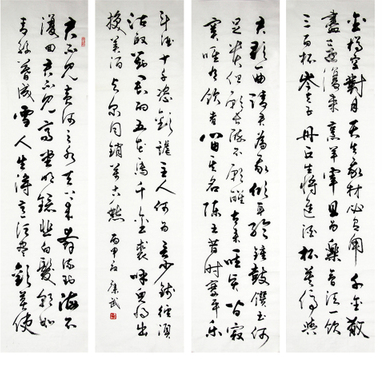 君不見黃河之水天上来奔流到海不
復回君不見高堂明鏡悲白髮朝如
青絲暮成雪人生得意須盡歡莫使
金樽空對月天生我材必有用千金散
盡還復来烹羊宰牛且為樂會須一飲
三百杯岑夫子丹丘生將進酒杯莫停與
君歌一曲請君為我傾耳聽鐘鼓饌玉何
足貴但願長醉不願醒古来聖賢皆寂
寞唯有飲者留其名陳王昔時宴平樂
斗酒十千恣歡謔主人何為言少錢徑須
沽取對君酌五花馬千金裘呼兒將出
換美酒與尔同銷萬古愁
丙申秋康武